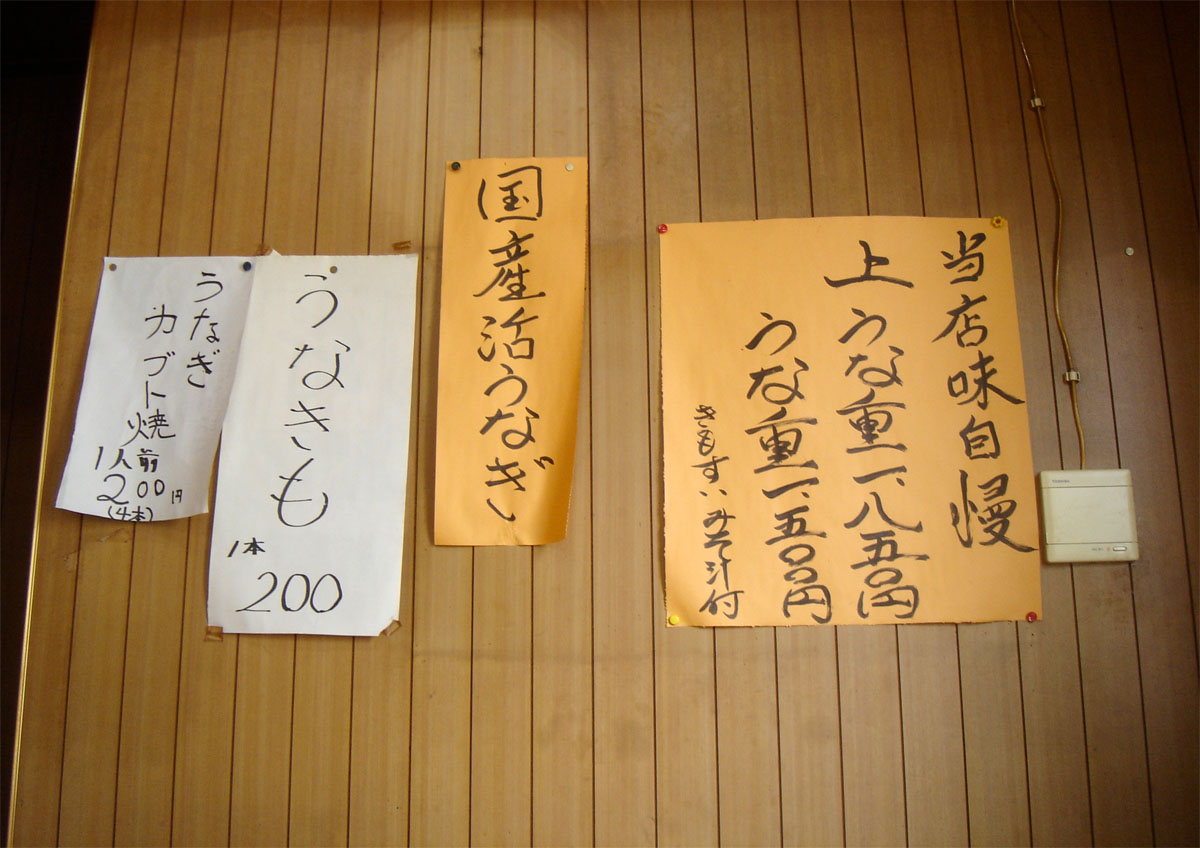 当店味自慢
上うな重一、八五〇円
うな重一、五〇〇円
きもすいみそ汁付
国産活うなぎ
うなきも
1本
200
うなぎ
カブト焼
1人前
200円
(4本)